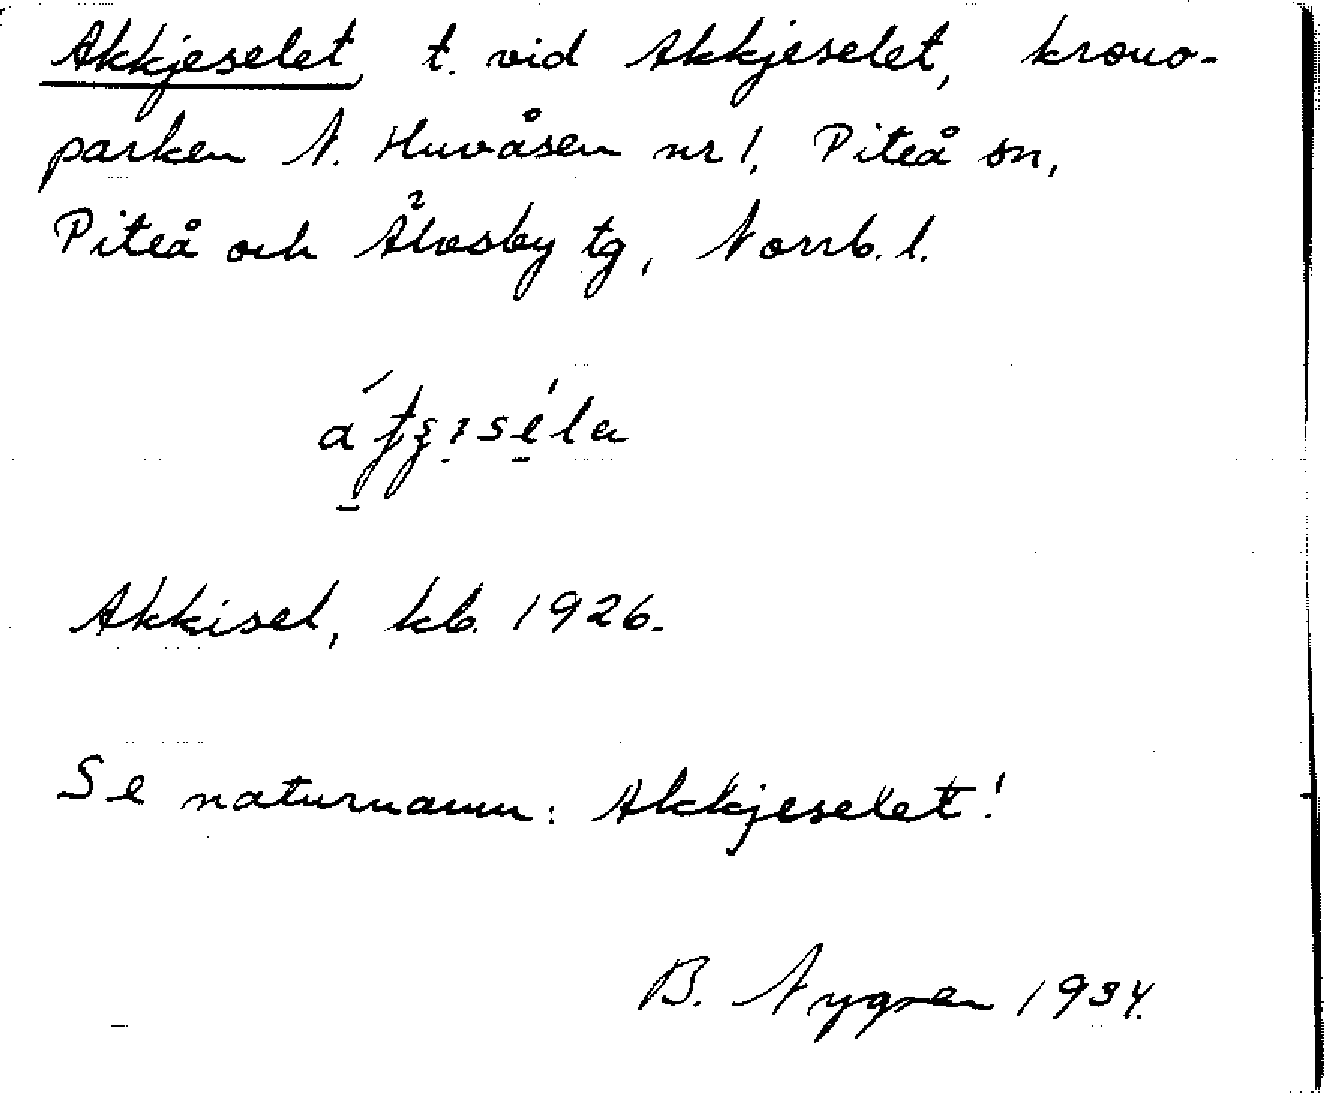 Akkjeselet, t. vid Akkjeselet, krono-
parken N. Huvåsen nr 1, Piteå sn,
Piteå och Älvsby tg, Norrb. l.
Akkisel, kb. 1926.
Se naturnamn: Akkjeselet!
B. Nygren 1934.